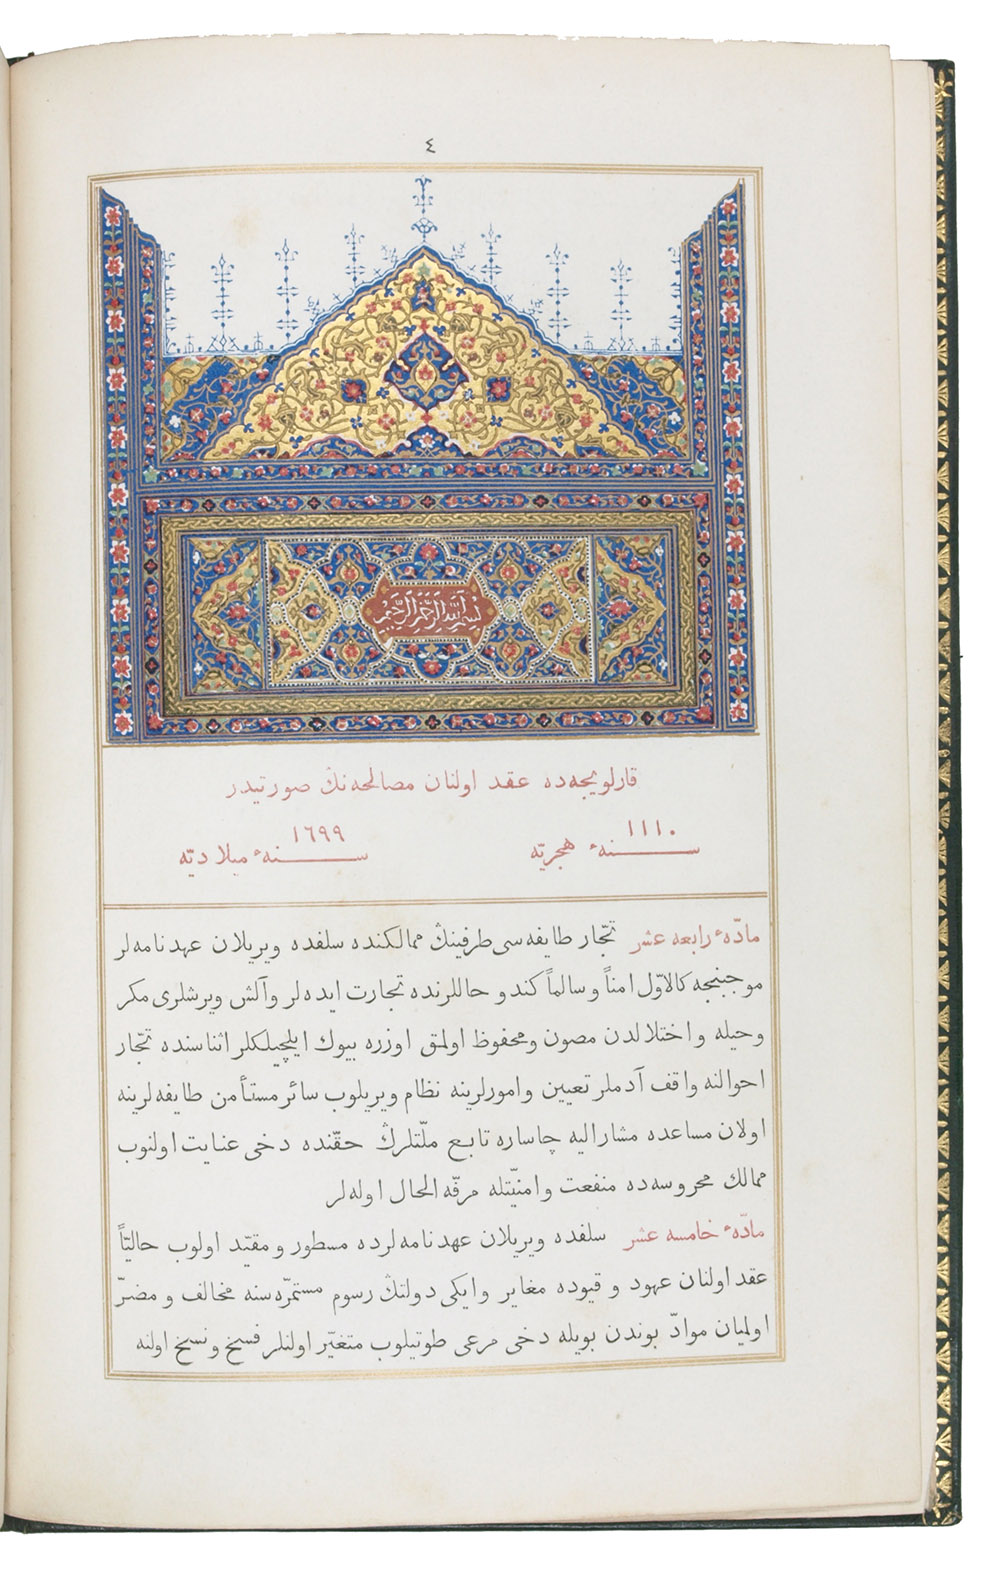 ٤
بسم الله الرحمن الرحيم
قارلويجه‌ده عقد اولنان مصالحه‌نڭ صورتيدر
سنهٔ هجريّه ١١١٠
سنهٔ ميلاديّه ١٦٩٩
مادّهٔ رابعه عشر تجّار طايفه‌سى طرفينڭ ممالكنده سلفده ويريلان عهدنامه‌لر
موجبنجه كالاوّل امناً و سالماً كندو حاللرنده تجارت ايده‌لر و آلش ويرشلرى مكر
و حيله و اختلالدن مصون و محفوظ اولمق اوزره بيوك ايلچيلكلر اثناسنده تجّار
احوالنه واقف آدملر تعيين و امورلرينه نظام ويريلوب سائر مستأمن طايفه‌لرينه
اولان مساعده مشاراليه چاساره تابع ملّتلرڭ حقّنده دخى عنايت اولنوب
ممالك محروسه‌ده منفعت و امنيّتله مرفّه الحال اوله‌لر
مادّهٔ خامسه عشر سلفده ويريلان عهدنامه‌لرده مسطور و مقيّد اولوب حاليّاً
عقد اولنان عهود و قيوده مغاير و ايكى دولتڭ رسوم مستمرّه‌سنه مخالف و مضرّ
اولميان موادّ بوندن بويله دخى مرعى طوتيلوب متغيّر اولنلر فسخ و نسخ اولنه